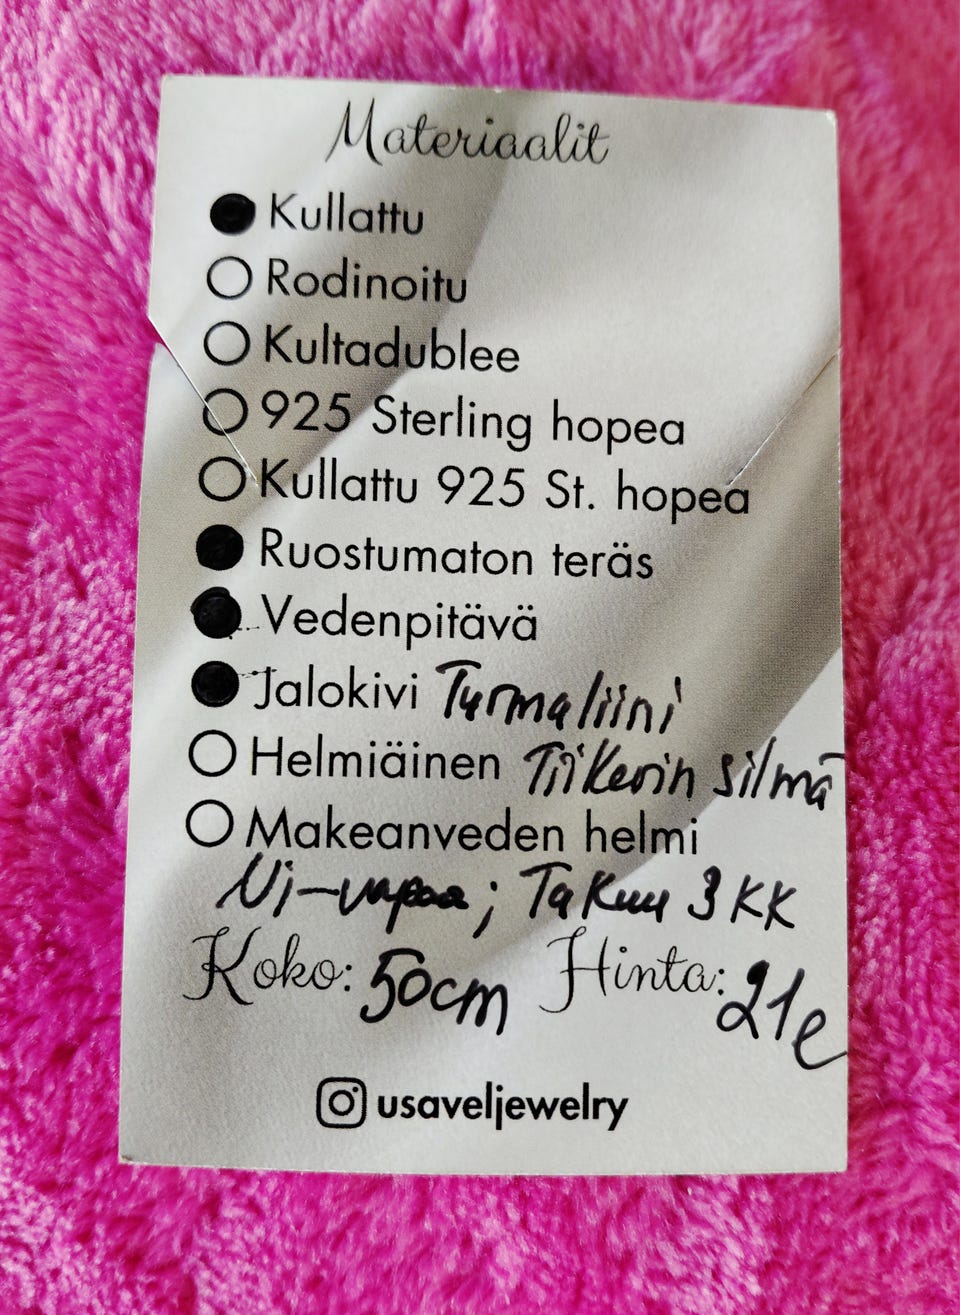 Materiaalit
Kullattu
Rodinoitu
Kultadublee
925 Sterling hopea
Kullattu 925 St. hopea
Ruostumaton teräs
Vedenpitävä
Jalokivi Turmaliini
Helmiäinen Tiikerin silmä
Makeanveden helmi
Ni-vapaa; Takuu 3 KK
Koko: 50cm Hinta: 21e
usaveljewelry